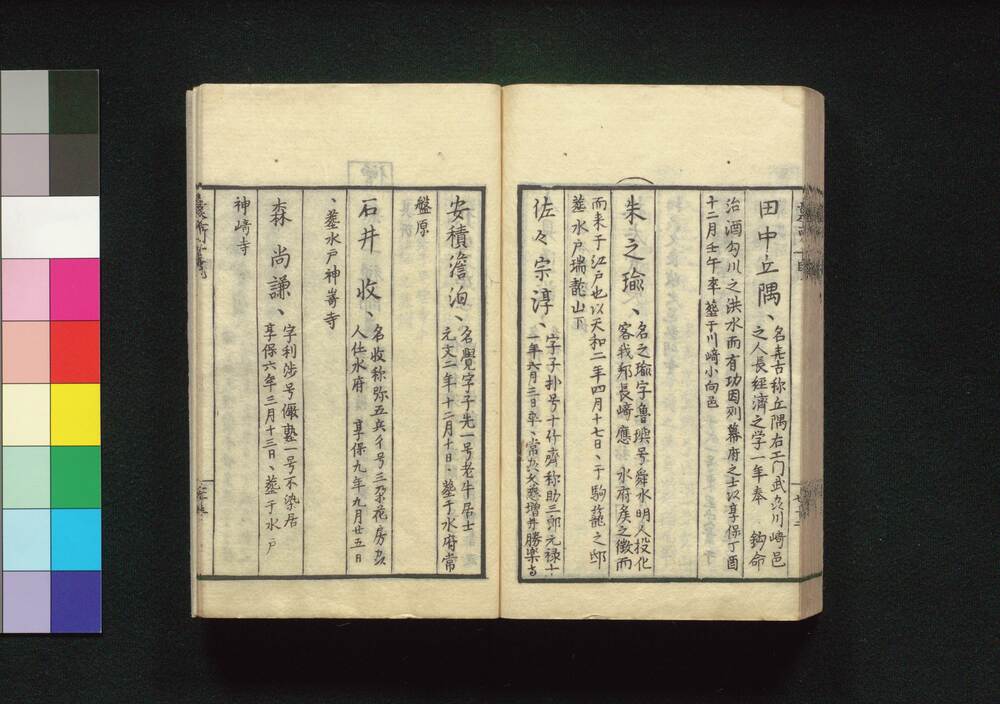 田中丘隅、名喜古称丘隅右エ門武州川崎邑
之人長経濟之学一年奉　鈞命
治酒匂川之洪水而有功因列幕府之士以享保丁酉
十二月壬午卒葬于川崎小向邑
朱之瑜、名之瑜字魯璵号舜水明人投化
客我邦長﨑應　水府矦之徴而
而来于江戸也以天和二年四月十七日、于駒籠之邸
葬水戸瑞龍山下
佐々宗淳、字子朴号十竹齋称助三郎元禄十
一年六月三日卒、常州久慈増井勝楽寺
安積澹泊、名覺字子先一号老牛居士
元文二年十二月十日、葬于水府常
盤原
石井收、名收称弥五兵ヱ号三朶花房州
人仕水府　享保九年九月廿五日
、葬水戸神嵜寺
森尚謙、字利渉号儼塾一号不染居
享保六年三月十三日、葬于水戸
神﨑寺